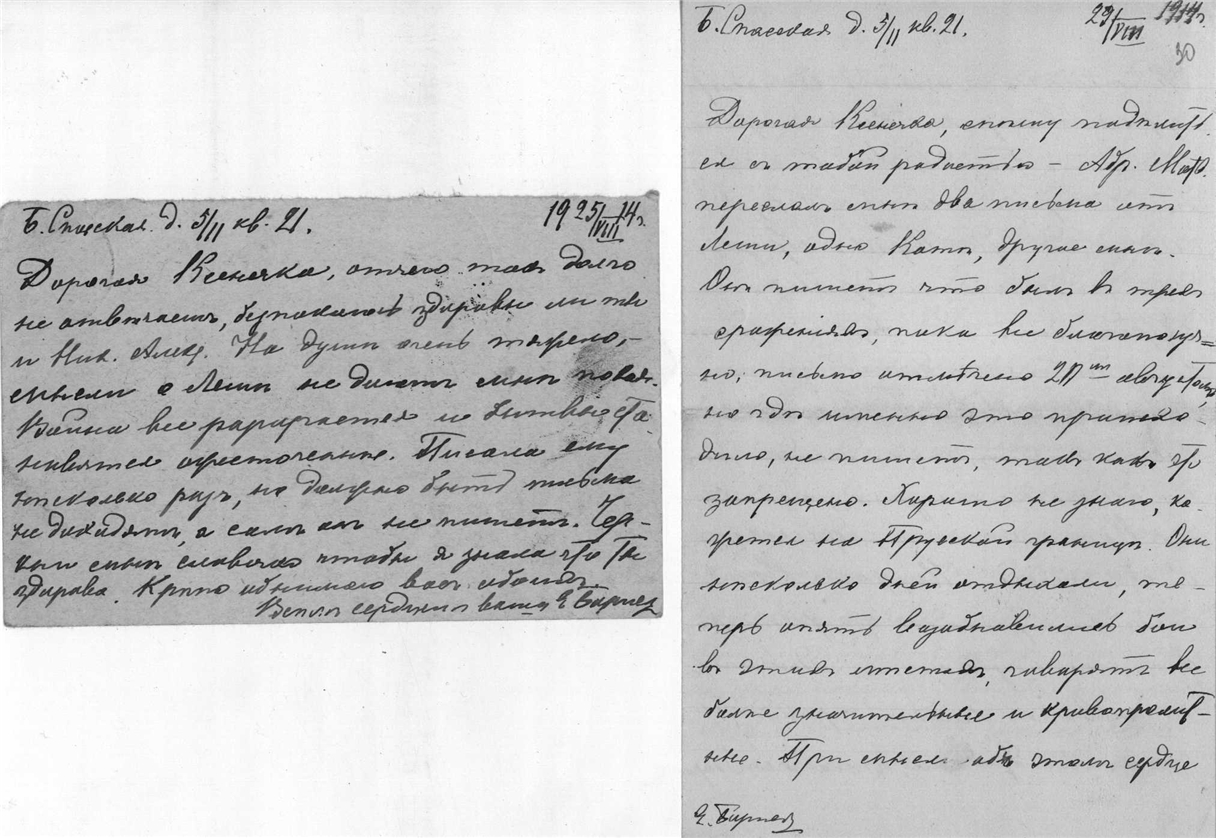 Б. Спасская д. 5/11 кв. 21.
1925/VIII 14 г.
Дорогая Ксенечка, отчего так долго
не отвѣчаешь, безпокоюсь здоровы ли ты
и Ник. Алек. На душѣ очень тяжело,–
мысли о Лешѣ не даютъ мнѣ покоя.
Война все разгорается и битвы ста-
новятся ожесточеннѣе. Писала ему
нѣсколько разъ, но должно быть письма
не доходятъ, а самъ онъ не пишетъ. Чер-
кни мнѣ словечко чтобы я знала что ты
здорова. Крѣпко обнимаю васъ обоихъ.
Всѣмъ сердцемъ ваша Е. Барнез
Б. Спасская д. 5/11 кв. 21.
29/VIII 1914 г.
30
Дорогая Ксенечка, спѣшу подѣлить-
ся съ тобой радостью – Абр. Матв.
переслалъ мнѣ два письма отъ
Леши, одно Катѣ, другое мнѣ.
Онъ пишетъ что былъ въ трехъ
сраженіяхъ, пока все благополуч=
но, письмо отмѣчено августомъ,
но гдѣ именно это происхо-
дило, не пишетъ, такъ какъ это
запрещено. Хорошо не знаю, ка-
жется на Прусской границѣ. Они
нѣсколько дней отдыхали, те-
перь опять возобновились бои
въ этихъ мѣстахъ, говорятъ все
болѣе значительные и кровопролит-
ные. При мысли объ этомъ сердце
Е. Барнез